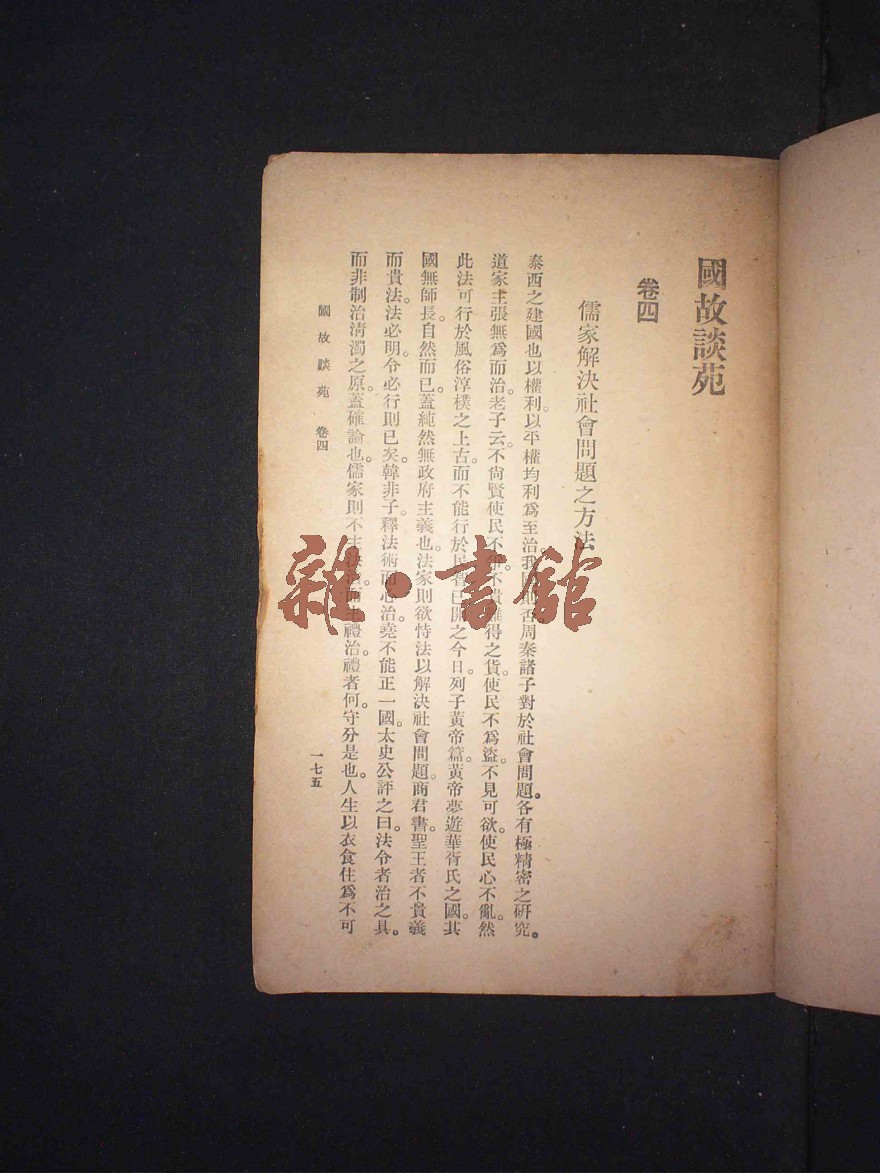 國故談苑
卷四
儒家解決社會問題之方法
泰西之建國也以權利。以平權均利爲至治。我國則否。周秦諸子對於社會問題。各有極精密之研究。
道家主張無爲而治。老子云。不尙賢使民不爭。不貴難得之貨。使民不爲盜。不見可欲。使民心不亂。然
此法可行於風俗淳樸之上古。而不能行於民智已開之今日。列子黃帝篇。黃帝夢遊華胥氏之國。其
國無師長。自然而已。蓋純然無政府主義也。法家則欲恃法以解決社會問題。商君書。聖王者不貴義
而貴法。法必明。令必行。則已矣。韓非子。釋法術而心治。堯不能正一國。太史公評之曰。法令者治之具。
而非制治淸濁之原。蓋確論也。儒家則不主法治。而主禮治。禮者何。守分是也。人生以衣食住爲不可
國故談苑 卷四
一七五
雜·書館